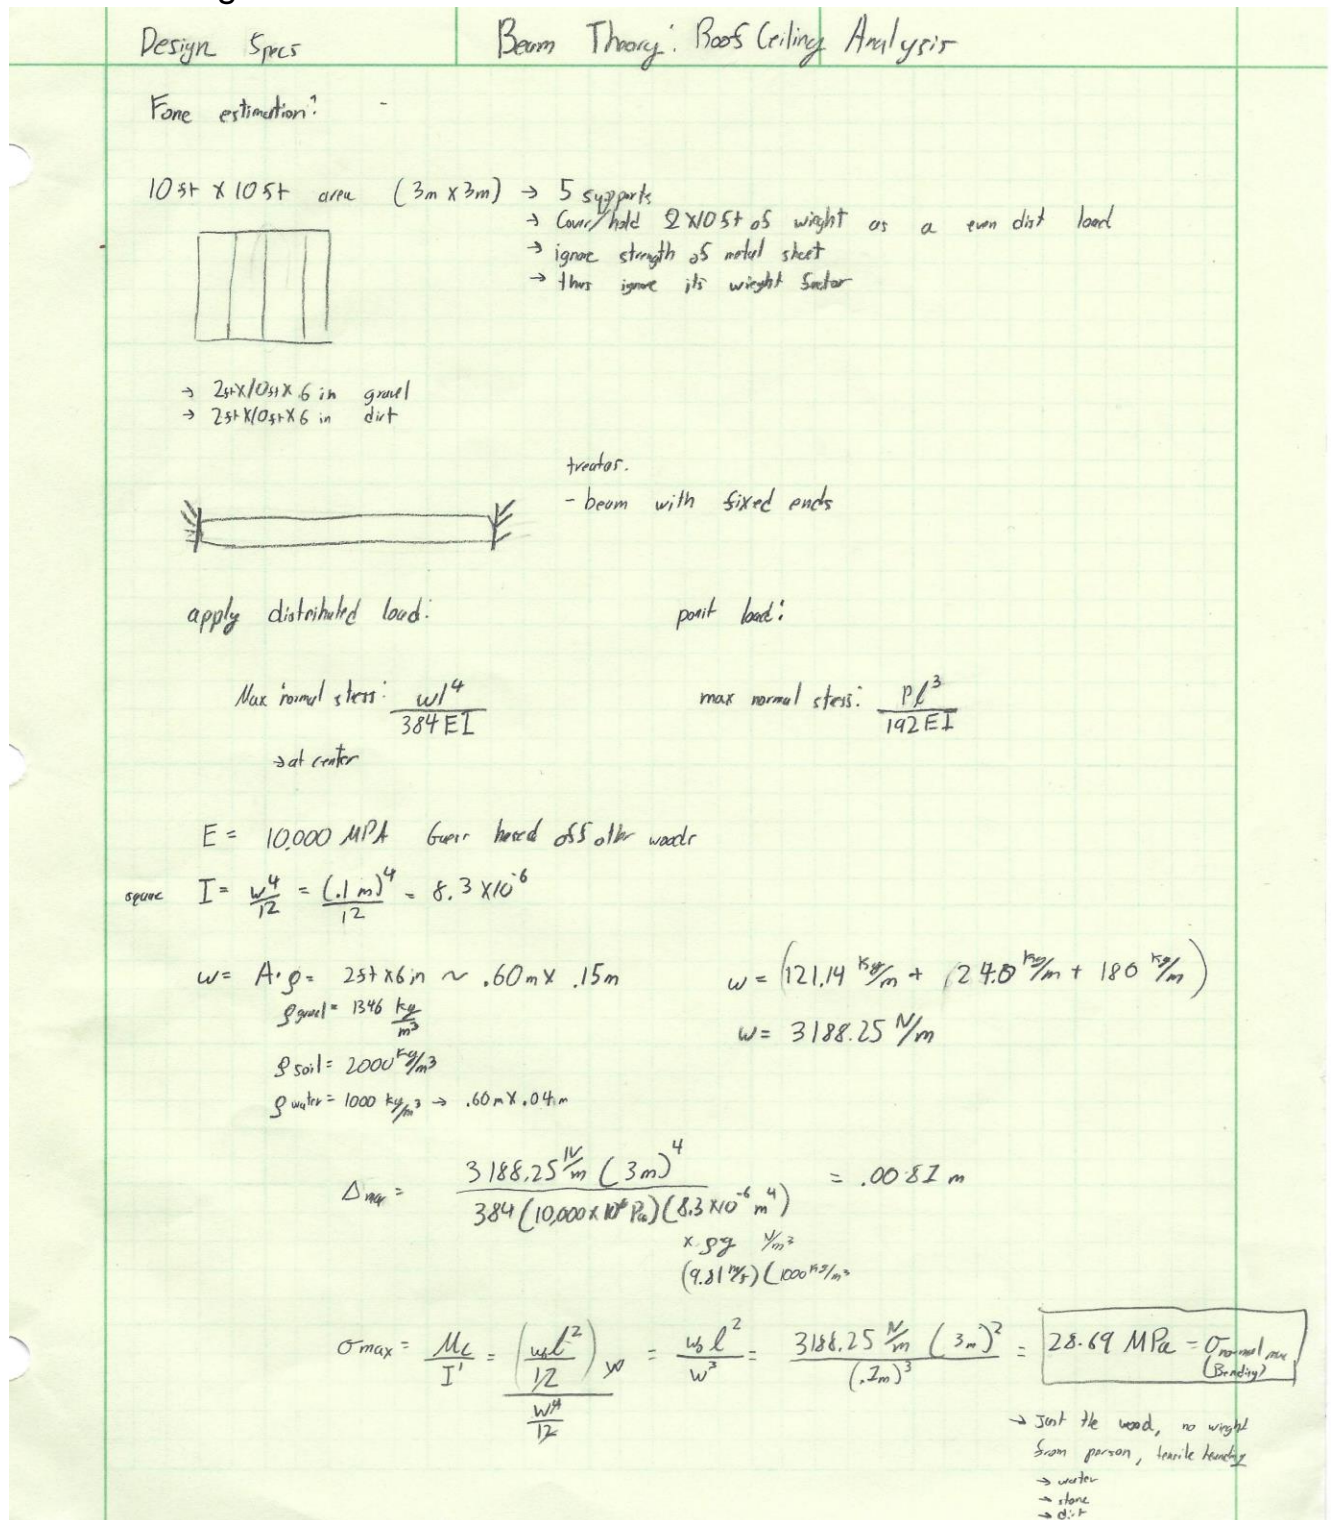 Design Specs
Beam Theory: Roof Ceiling Analysis
estimation:
10 ft x 10 ft area (3m x 3m) → 5 supports
→ Cover/hold 2x10 ft of wieght as a even dist load
→ ignore strength of metal sheet
→ thus ignore its wieght factor
→ 2ft x 10ft x 6 in gravel
→ 2ft x 10ft x 6 in dirt
- beam with fixed ends
apply distributed load:
point load:
Max normal stess: wl⁴/384EI
max normal stess: Pl³/192EI
→ at center
E = 10,000 MPA Guess based off other woods
square I = w⁴/12 = (.1 m)⁴/12 = 8.3 x10⁻⁶
w = A·ρ = 2ft x 6in ~ .60m x .15m
w = (121.14 kg/m + (24.0 kg/m + 180 kg/m)
ρ gravel = 1346 kg/m³
w = 3188.25 N/m
ρ soil = 2000 kg/m³
ρ water = 1000 kg/m³ → .60m x .04m
Δ max = 3188.25 N/m (3m)⁴ / 384(10,000 x 10⁶ Pa)(8.3 x10⁻⁶ m⁴) = .0081 m
x ρg N/m³
(9.81 m/s)(1000 kg/m³
σ max = Mc/I = (w₀l²/12) w / w⁴/12 = w₀l²/w³ = 3188.25 N/m (3m)²/(.1m)³ = 28.69 MPa = σ normal max
(Bending)
→ Just the wood, no wieght
from person, tensile
→ water
→ stone
→ dirt